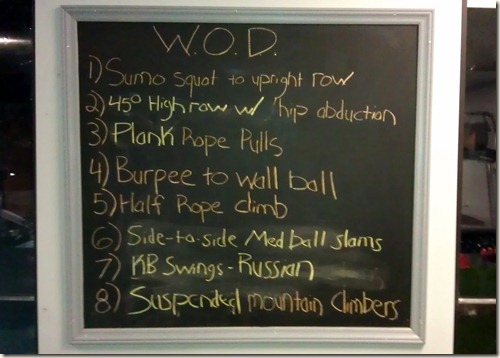 W.O.D.
1) Sumo squat to upright row
2) 45° High row w/ hip abduction
3) Plank Rope Pulls
4) Burpee to wall ball
5) Half Rope climb
6) Side-to-side Med ball slams
7) KB Swings - Russian
8) Suspended mountain climbers